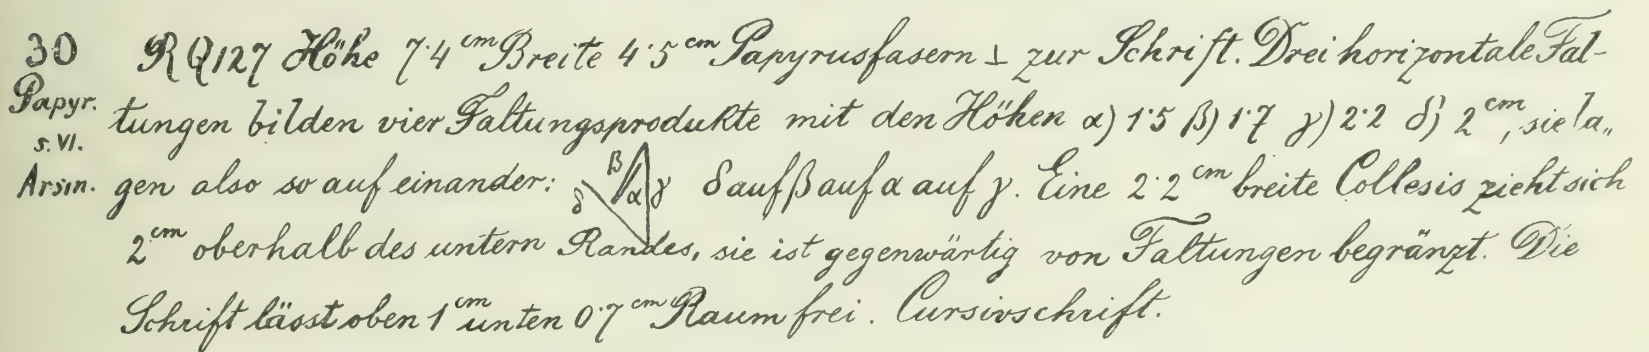 30 R Q 127 Höhe 7·4 cm Breite 4·5 cm Papyrusfasern ⊥ zur Schrift. Drei horizontale Fal-
Papyr. tungen bilden vier Faltungsprodukte mit den Höhen α) 1·5 β) 1·7 γ) 2·2 δ) 2 cm, sie la„
s. VI.
Arsin. gen also so auf einander: δ β α γ δ auf β auf α auf γ. Eine 2·2 cm breite Collesis zieht sich
2 cm oberhalb des untern Randes, sie ist gegenwärtig von Faltungen begränzt. Die
Schrift lässt oben 1 cm unten 0·7 cm Raum frei. Cursivschrift.